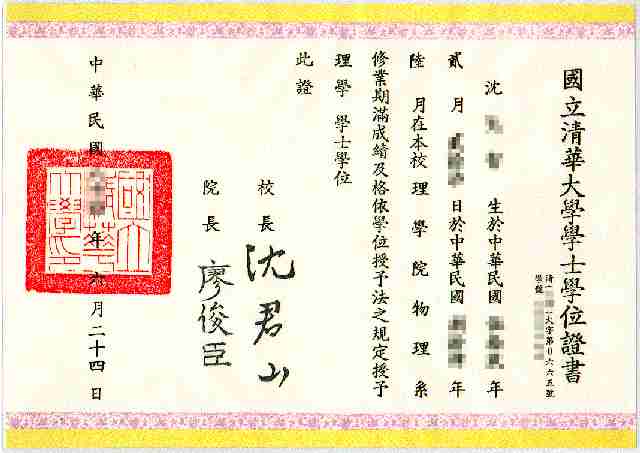 國立清華大學學士學位證書
大字第廿六六五號
學號
沈 生於中華民國 年
貳月 日於中華民國 年
陸月在本校理學院物理系
修業期滿成績及格依學位授予法之規定授予
理學 學士學位
此證
校長 沈君山
院長 廖俊臣
中華民國 年六月二十四日
國立清華大學印